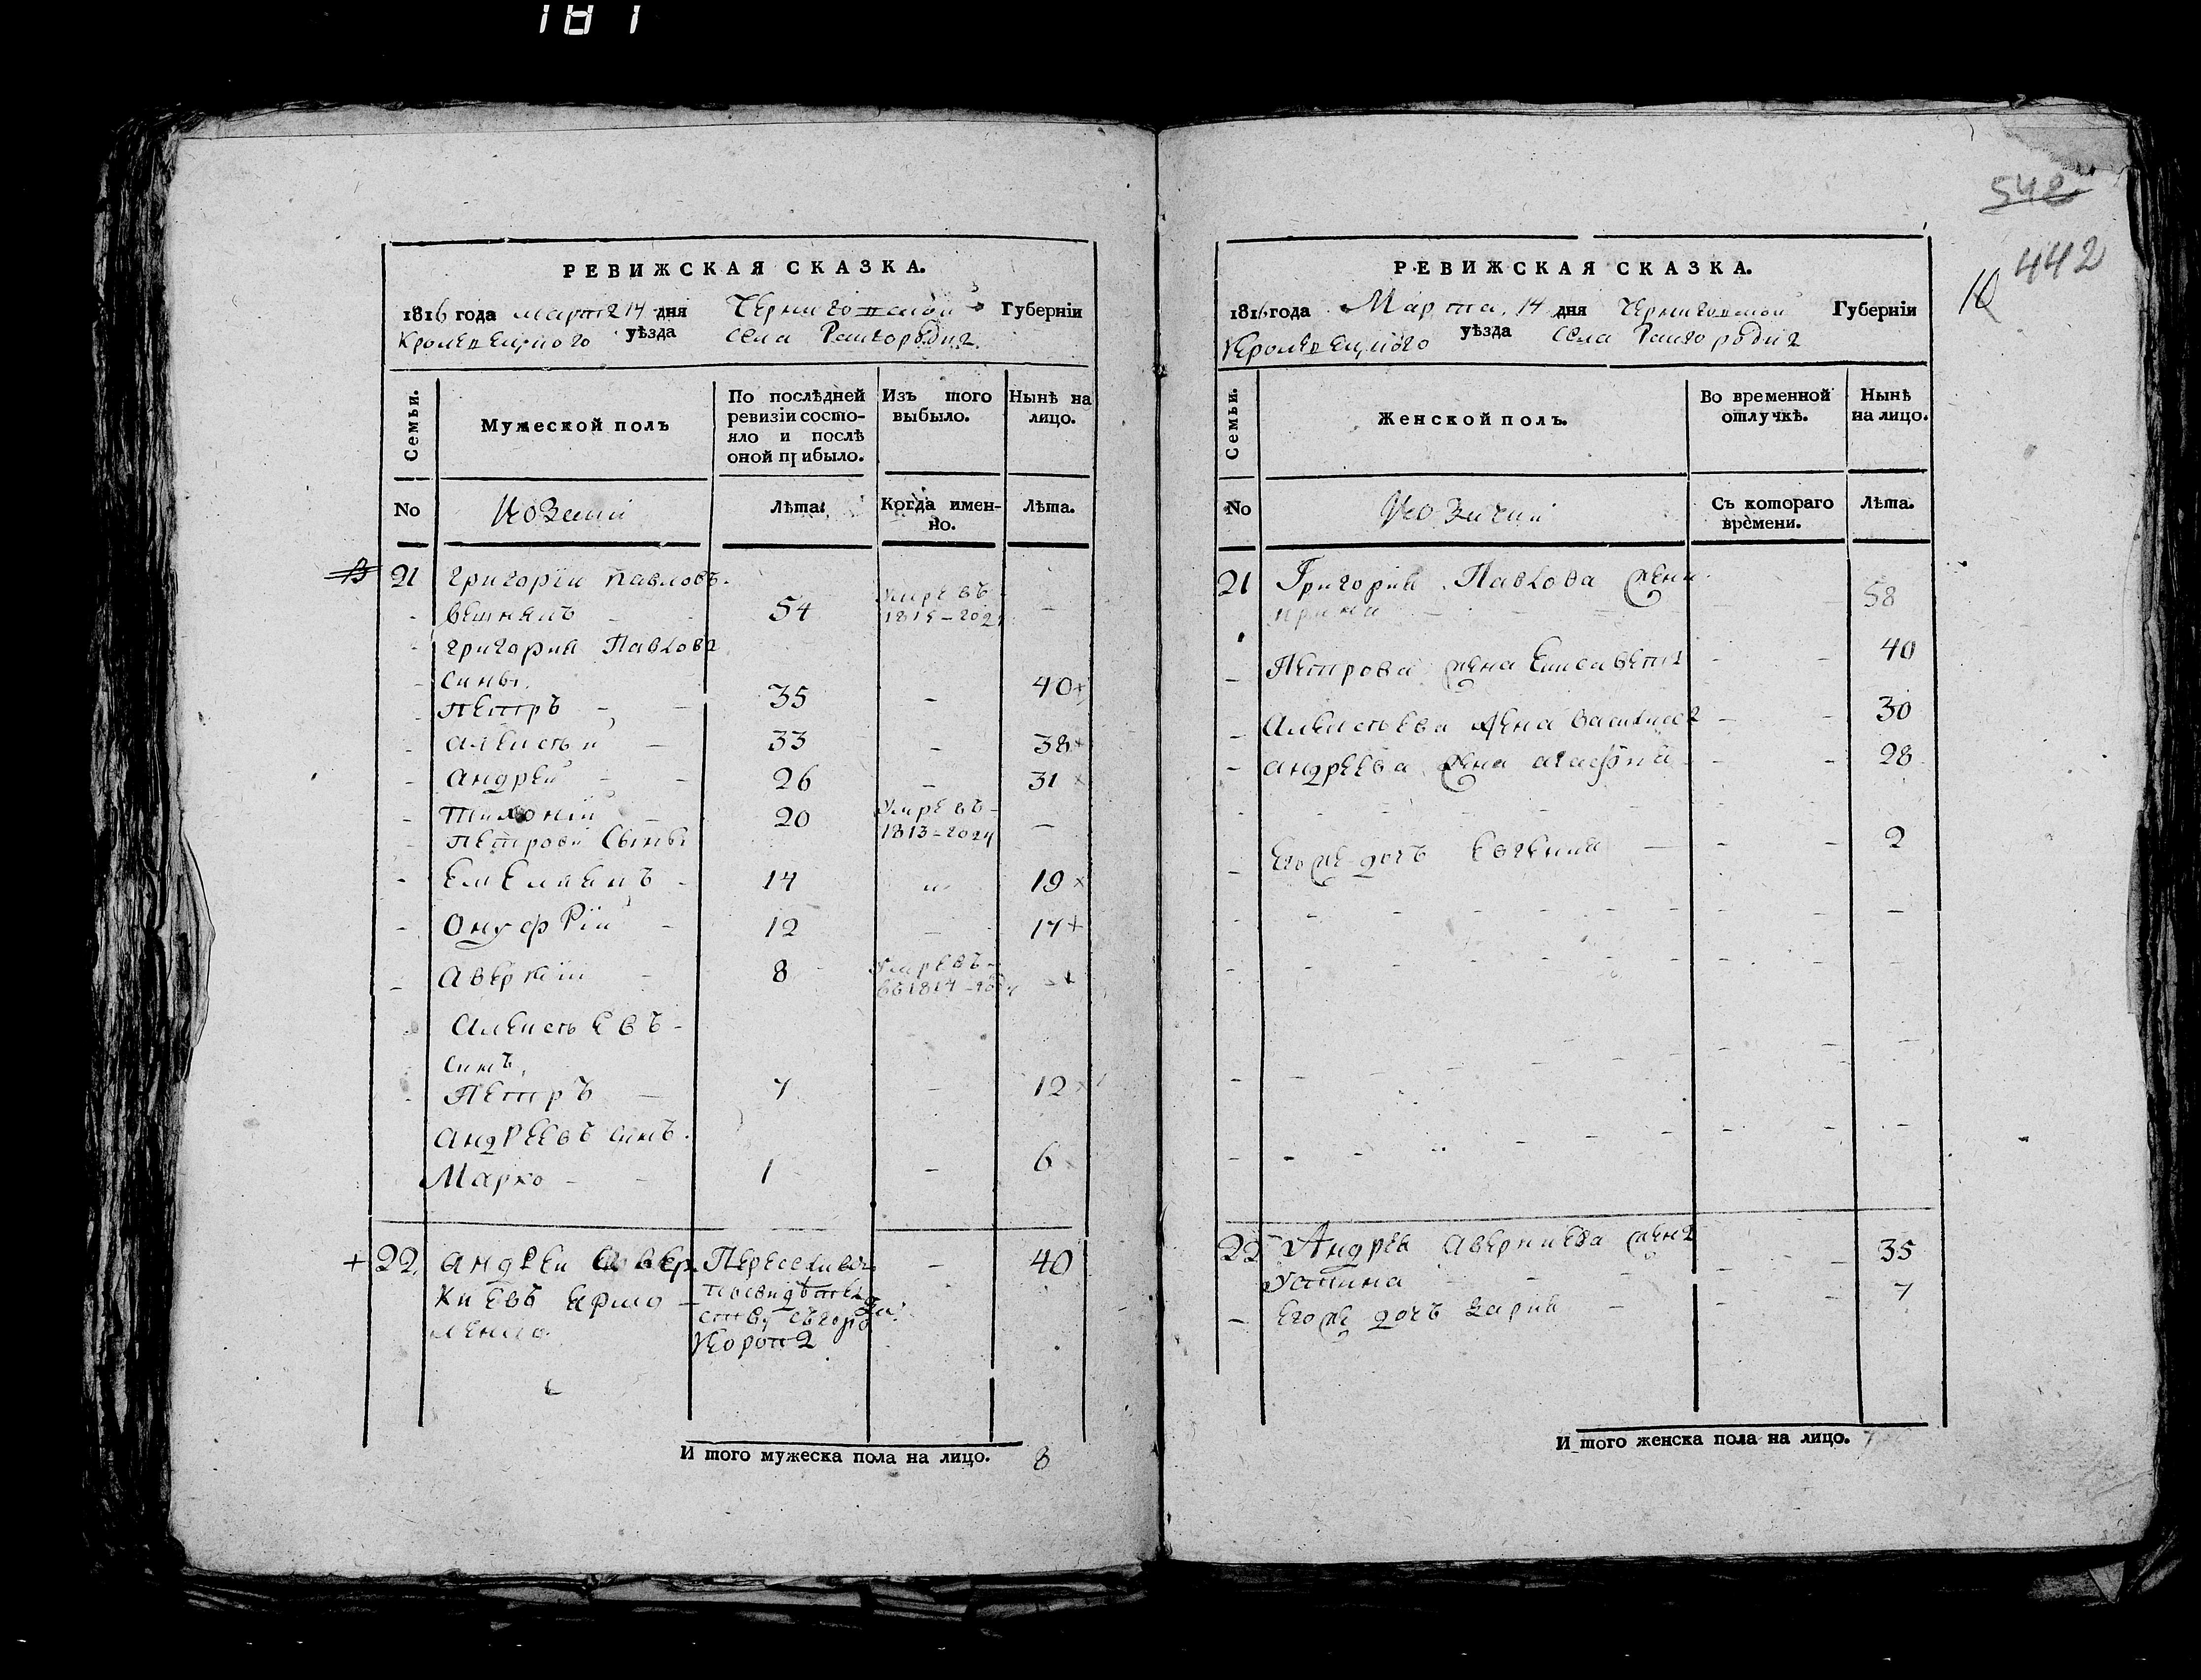 181
РЕВИЖСКАЯ СКАЗКА.
1816 года марта 14 дня Черниговской Губернїи
Кролевецкого уѣзда села Райгородка
Семьи.
Мужеской полъ
По послѣдней ревизїи состо-
яло и послѣ
оной прибыло.
Изъ того
выбыло.
Нынѣ на
лицо.
No
Козаки
Лѣта.
Когда имен-
но.
Лѣта.
21 Григорїй Павловъ
54 Умре въ
1815 году
Григорїя Павлова
сины
Петръ 35 - 40
Алексѣй 33 - 38
Андрей 26 - 31
20 Умре въ
1813 году
Петрови Сыны
Емельянъ 14 19
Онуфрїй 12 - 17
Аверкїй 8 Умре въ
въ 1814 году
Алексѣевъ
синъ
Петръ 7 - 12
Андреевъ синъ
Марко 1 - 6
+ 22 Андрей Авер Переселився - 40
кїевъ Ярмо
ленко
Коропа
И того мужеска пола на лицо. 8
542
442
10
РЕВИЖСКАЯ СКАЗКА.
1816 года Марта 14 дня Черниговской Губернїи
Кролевецкого уѣзда Села Райгородка
Семьи.
Женской полъ.
Во временной
отлучкѣ.
Нынѣ
на лицо.
No
Козачки
Съ котораго
времени.
Лѣта.
21 Григорїя Павлова жена
58
Петрова жена Елисавета 40
Алексѣева жена Василиса 30
Андреева жена Агафїя 28
Его же дочь Евгенїя 2
22 Андрея Аверкиева жена 35
Устина
Его же дочь 7
И того женска пола на лицо. 7